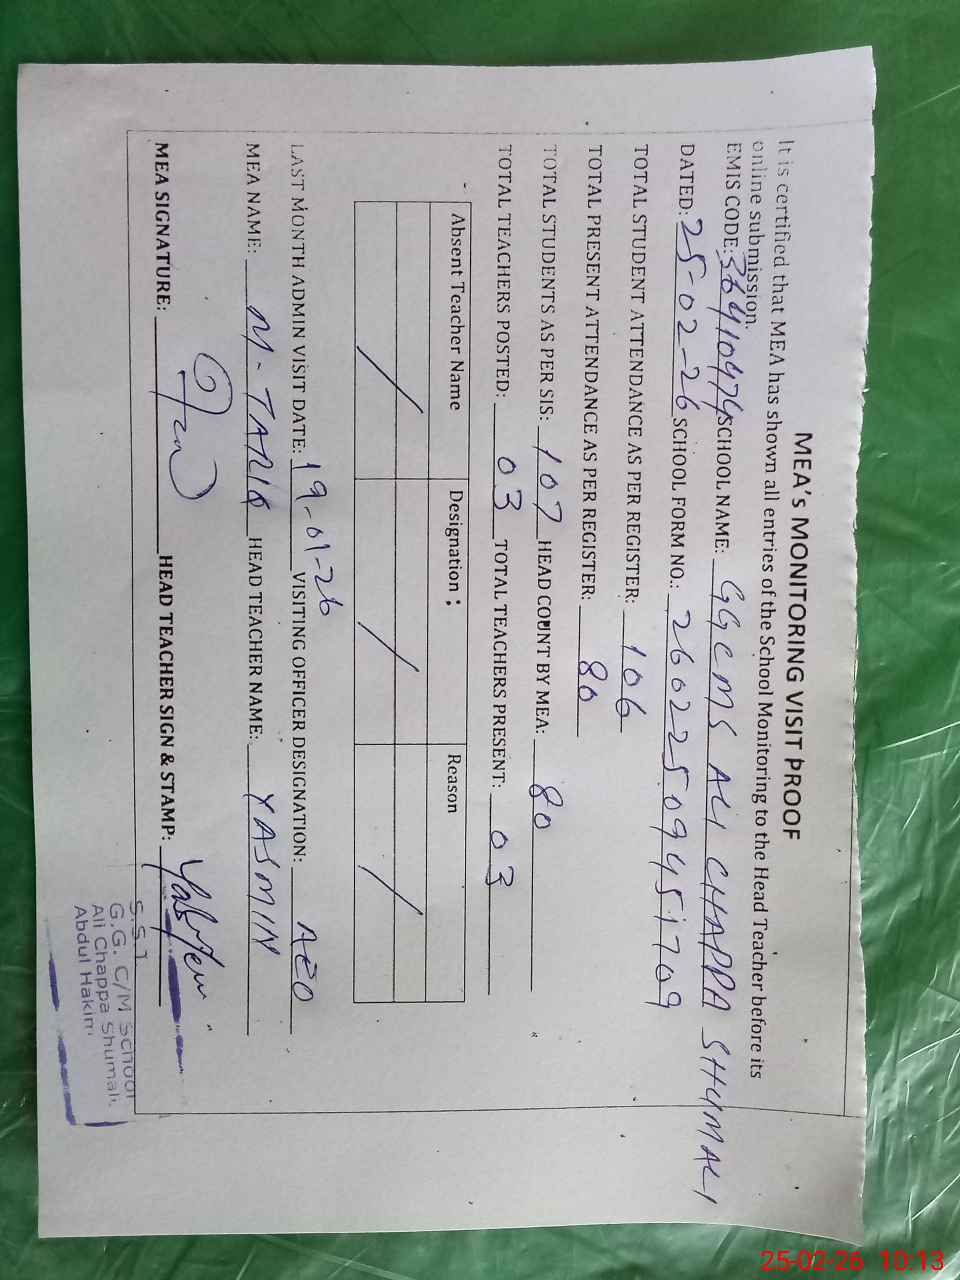 MEA's MONITORING VISIT PROOF
It is certified that MEA has shown all entries of the School Monitoring to the Head Teacher before its
online submission.
EMIS CODE: 36410474 SCHOOL NAME: GGCMS ALI CHAPPA SHUMALI
DATED: 25-02-26 SCHOOL FORM NO.: 26022509451709
TOTAL STUDENT ATTENDANCE AS PER REGISTER: 106
TOTAL PRESENT ATTENDANCE AS PER REGISTER: 80
TOTAL STUDENTS AS PER SIS: 107 HEAD COUNT BY MEA: 80
TOTAL TEACHERS POSTED: 03 TOTAL TEACHERS PRESENT: 03
Absent Teacher Name Designation: Reason
LAST MONTH ADMIN VISIT DATE: 19-01-26 VISITING OFFICER DESIGNATION: AEO
MEA NAME: M. TARIQ HEAD TEACHER NAME: YASMIN
MEA SIGNATURE: HEAD TEACHER SIGN & STAMP:
G.G. C/M School
Ali Chappa Shumali
Abdul Hakim
25-02-26 10:13